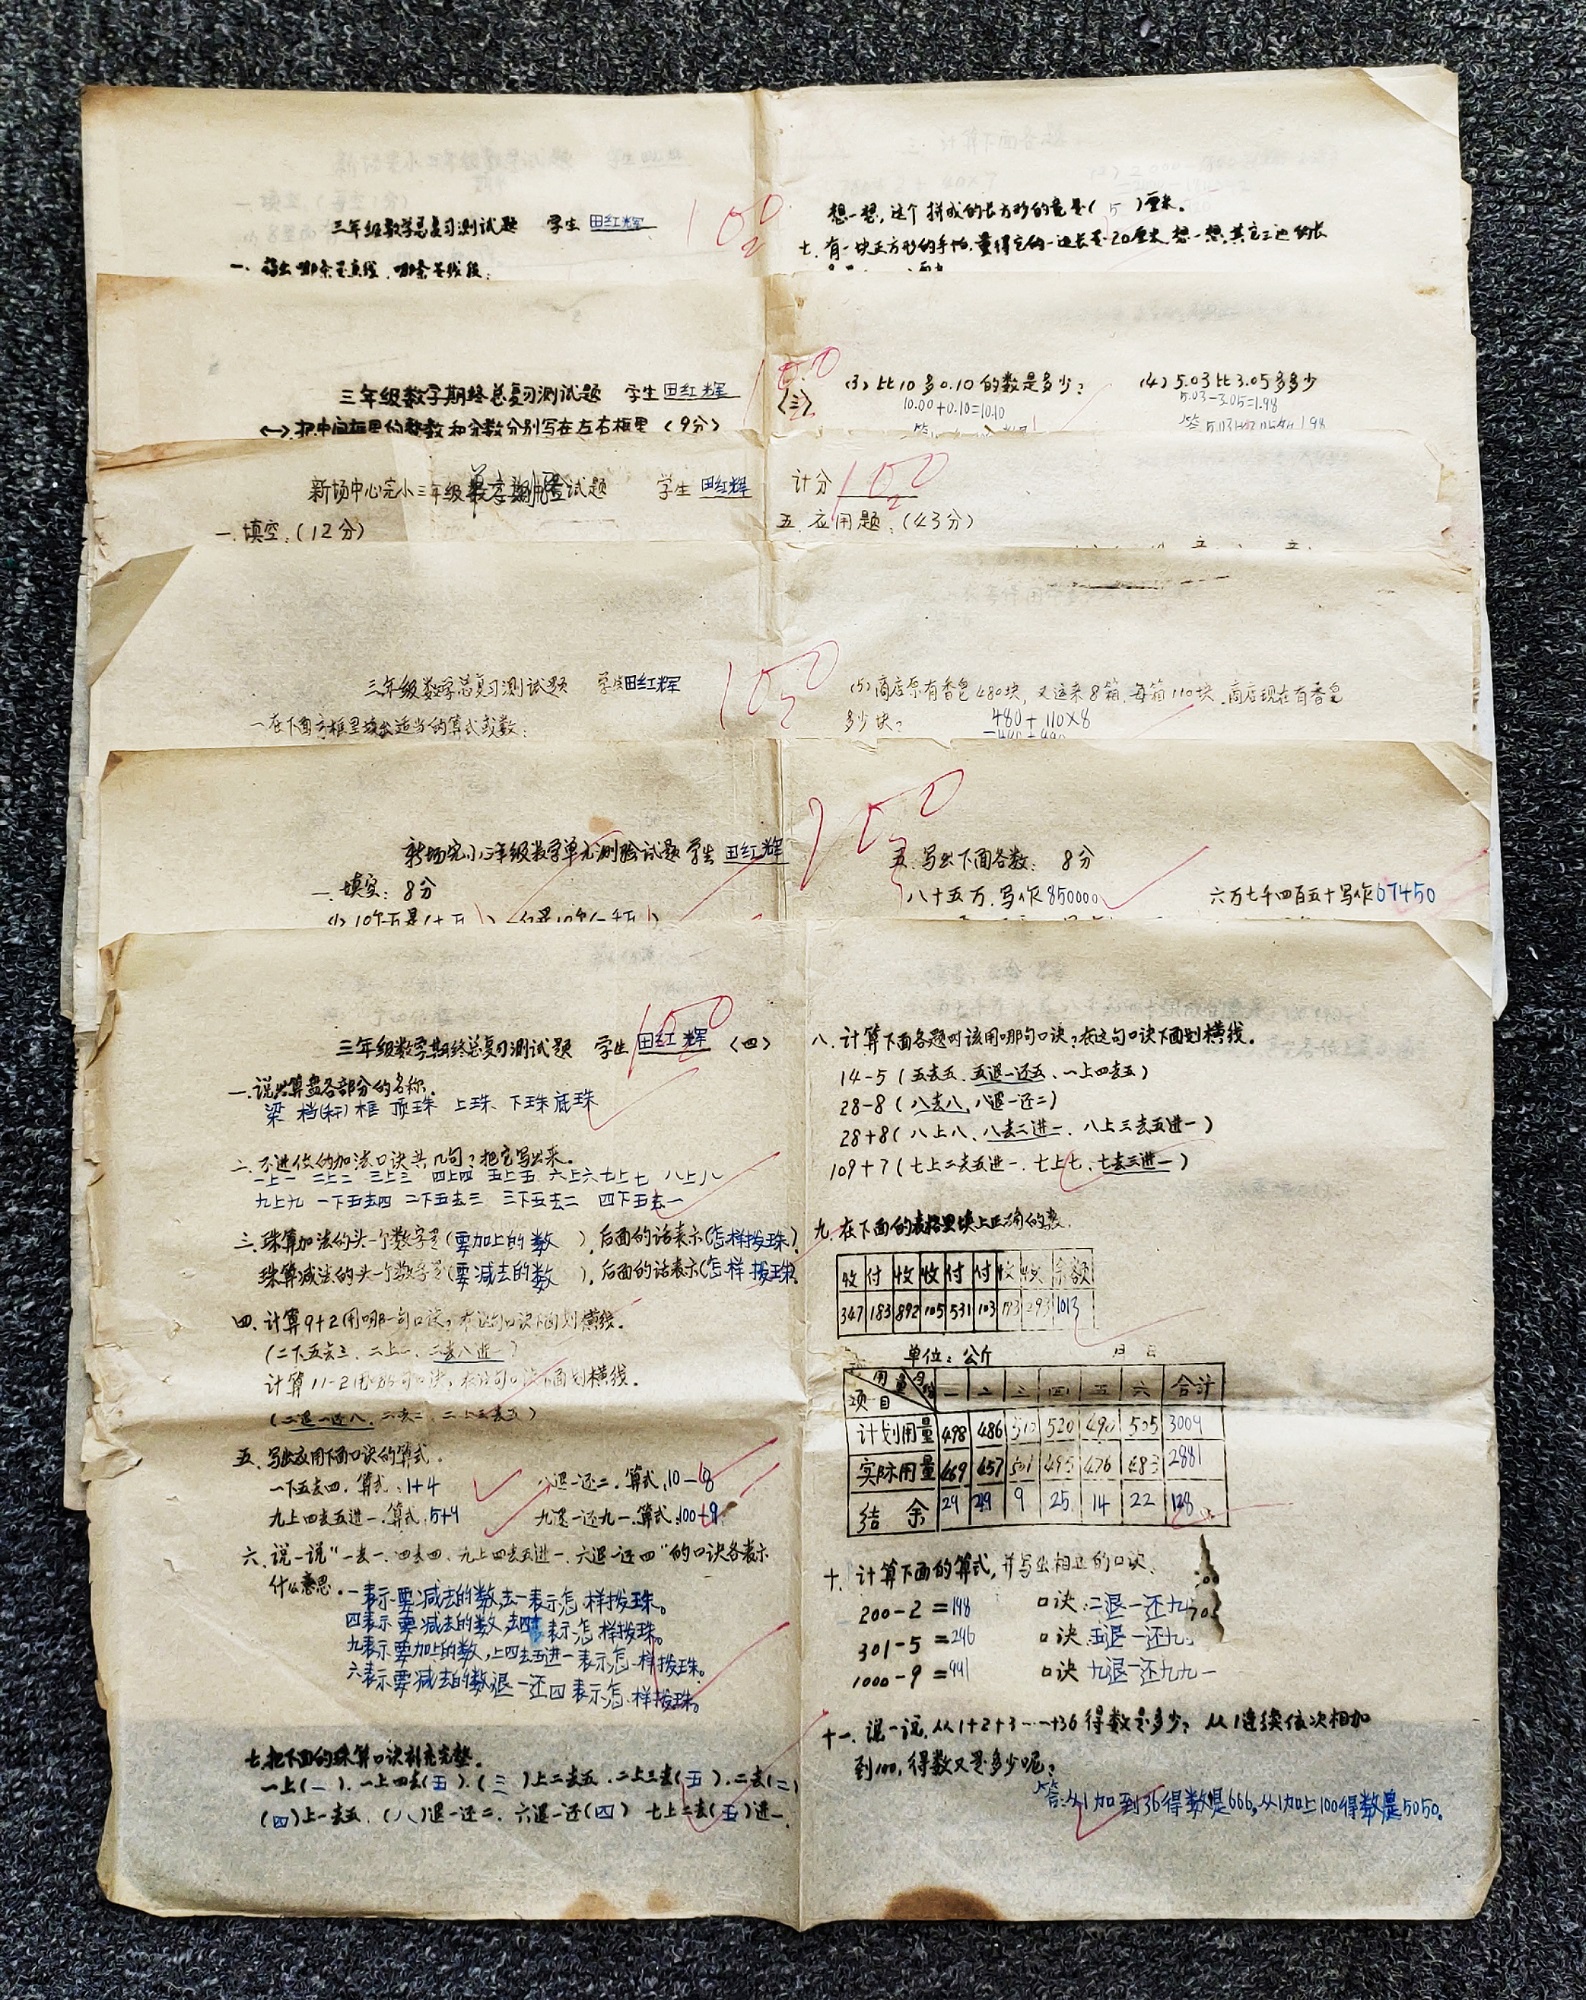 三年级数学总复习测试题 学生 田红辉 100
一、指出哪条是直线，哪条是线段。
想一想，这个拼成的长方形的宽是( 5 )厘米。
七、有一块正方形的手帕，量得它的一边长是20厘米，想一想，其它三边的长
三年级数学期终总复习测试题 学生 田红辉 100 (三)
把中间框里的整数和分数分别写在左右框里 (9分)
(3) 比10多0.10的数是多少？ (4) 5.03比3.05多多少
10.00+0.10=10.10 5.03-3.05=1.98
新场中心完小三年级 试题 学生 田红辉 计分 100
一、填空：(12分)
五、应用题：(43分)
三年级数学总复习测试题 学生 田红辉 100
一、在下面方框里填出适当的算式或数：
(5) 商店原有香皂480块，又运来8箱，每箱110块，商店现在有香皂
多少块？ 480+110×8
新场完小三年级数学单元测验试题 学生 田红辉 100
一、填空： 8分
(1) 10个万是(十万)
五、写出下面各数： 8分
八十五万，写作850000 六万七千四百五十写作67450
三年级数学期终总复习测试题 学生 田红辉 (四) 100
一、说出算盘各部分的名称。
梁 档(杆) 框 顶珠 上珠 下珠 底珠
二、不进位的加法口诀共几句？把它写出来。
一上一 二上二 三上三 四上四 五上五 六上六 七上七 八上八
九上九 一下五去四 二下五去三 三下五去二 四下五去一
三、珠算加法的头一个数字是(要加上的数 )，后面的话表示(怎样拨珠)。
珠算减法的头一个数字是(要减去的数 )，后面的话表示(怎样拨珠)。
四、计算9+2用哪一句口诀？在这句口诀下面划横线。
(二下五去三、二上二、二去八进一)
计算11-2用哪句口诀，在这句口诀下面划横线。
(二退一还八、二去二、二上三去五)
五、写出应用下面口诀的算式。
一下五去四，算式：1+4 八退一还二，算式：10-8
九上四去五进一，算式：5+9 九退一还九一，算式：100-9
六、说一说“一去一、四去四、九上四去五进一、六退一还四”的口诀各表示
什么意思。
一表示要减去的数，去一表示怎样拨珠。
四表示要减去的数，去四表示怎样拨珠。
九表示要加上的数，上四去五进一表示怎样拨珠。
六表示要减去的数，退一还四表示怎样拨珠。
七、把下面的珠算口诀补充完整。
一上(一)、一上四去(五)、(三)上二去五、二上三去(五)、二去(二)
(四)上一去五、(八)退一还二、六退一还(四) 七上二去(五)进一
八、计算下面各题时该用哪句口诀？在这句口诀下面划横线。
14-5 (五去五、五退一还五、一上四去五)
28-8 (八去八、八退一还二)
28+8 (八上八、八去二进一、八上三去五进一)
109+7 (七上二去五进一、七上七、七去三进一)
九、在下面的表格里填上正确的数。
收 付 收 收 付 付 收 收 余额
347 183 892 105 531 103 193 293 1013
单位：公斤 月 日
项目 用量 月份 一 二 三 四 五 六 合计
计划用量 498 486 510 520 490 505 3009
实际用量 469 457 501 495 476 483 2881
结余 29 29 9 25 14 22 128
十、计算下面的算式，并写出相应的口诀。
200-2=198 口诀：二退一还九
301-5=296 口诀 五退一还九
1000-9=991 口诀 九退一还九九一
十一、说一说，从1+2+3……+36得数是多少？从1连续依次相加
到100，得数又是多少呢？
答：从1加到36得数是666，从1加上100得数是5050。